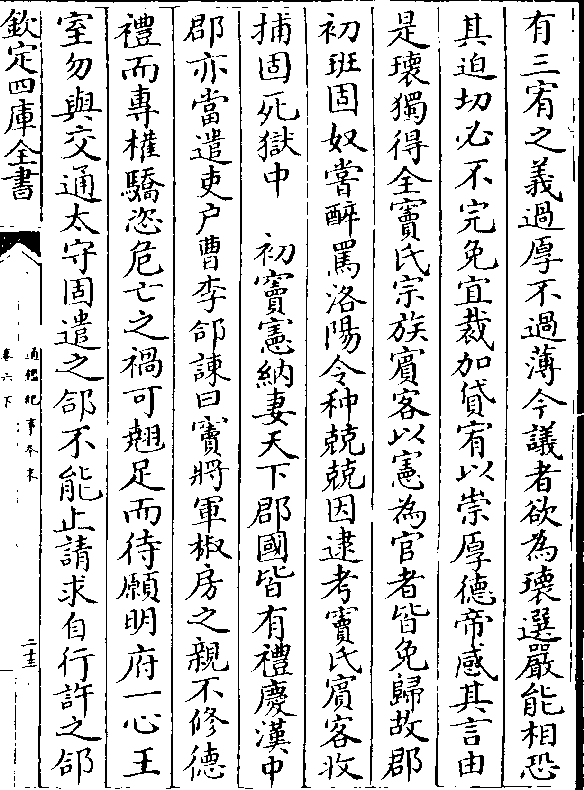 有三宥之義過厚不過薄今議者欲為瓌選嚴能相恐
其迫切必不完免宜裁加貸宥以崇厚德帝感其言由
是瓌獨得全竇氏宗族賓客以憲為官者皆免歸故郡
初班固奴嘗醉罵洛陽令种兢兢因逮考竇氏賓客收
捕固死獄中　初竇憲納妻天下郡國皆有禮慶漢中
郡亦當遣吏户曹李郃諫曰竇將軍椒房之親不修德
禮而專權驕恣危亡之禍可翹足而待願明府一心王
室勿與交通太守固遣之郃不能止請求自行許之郃
欽定四庫全書
通鑑紀事本末
卷六下
二十三